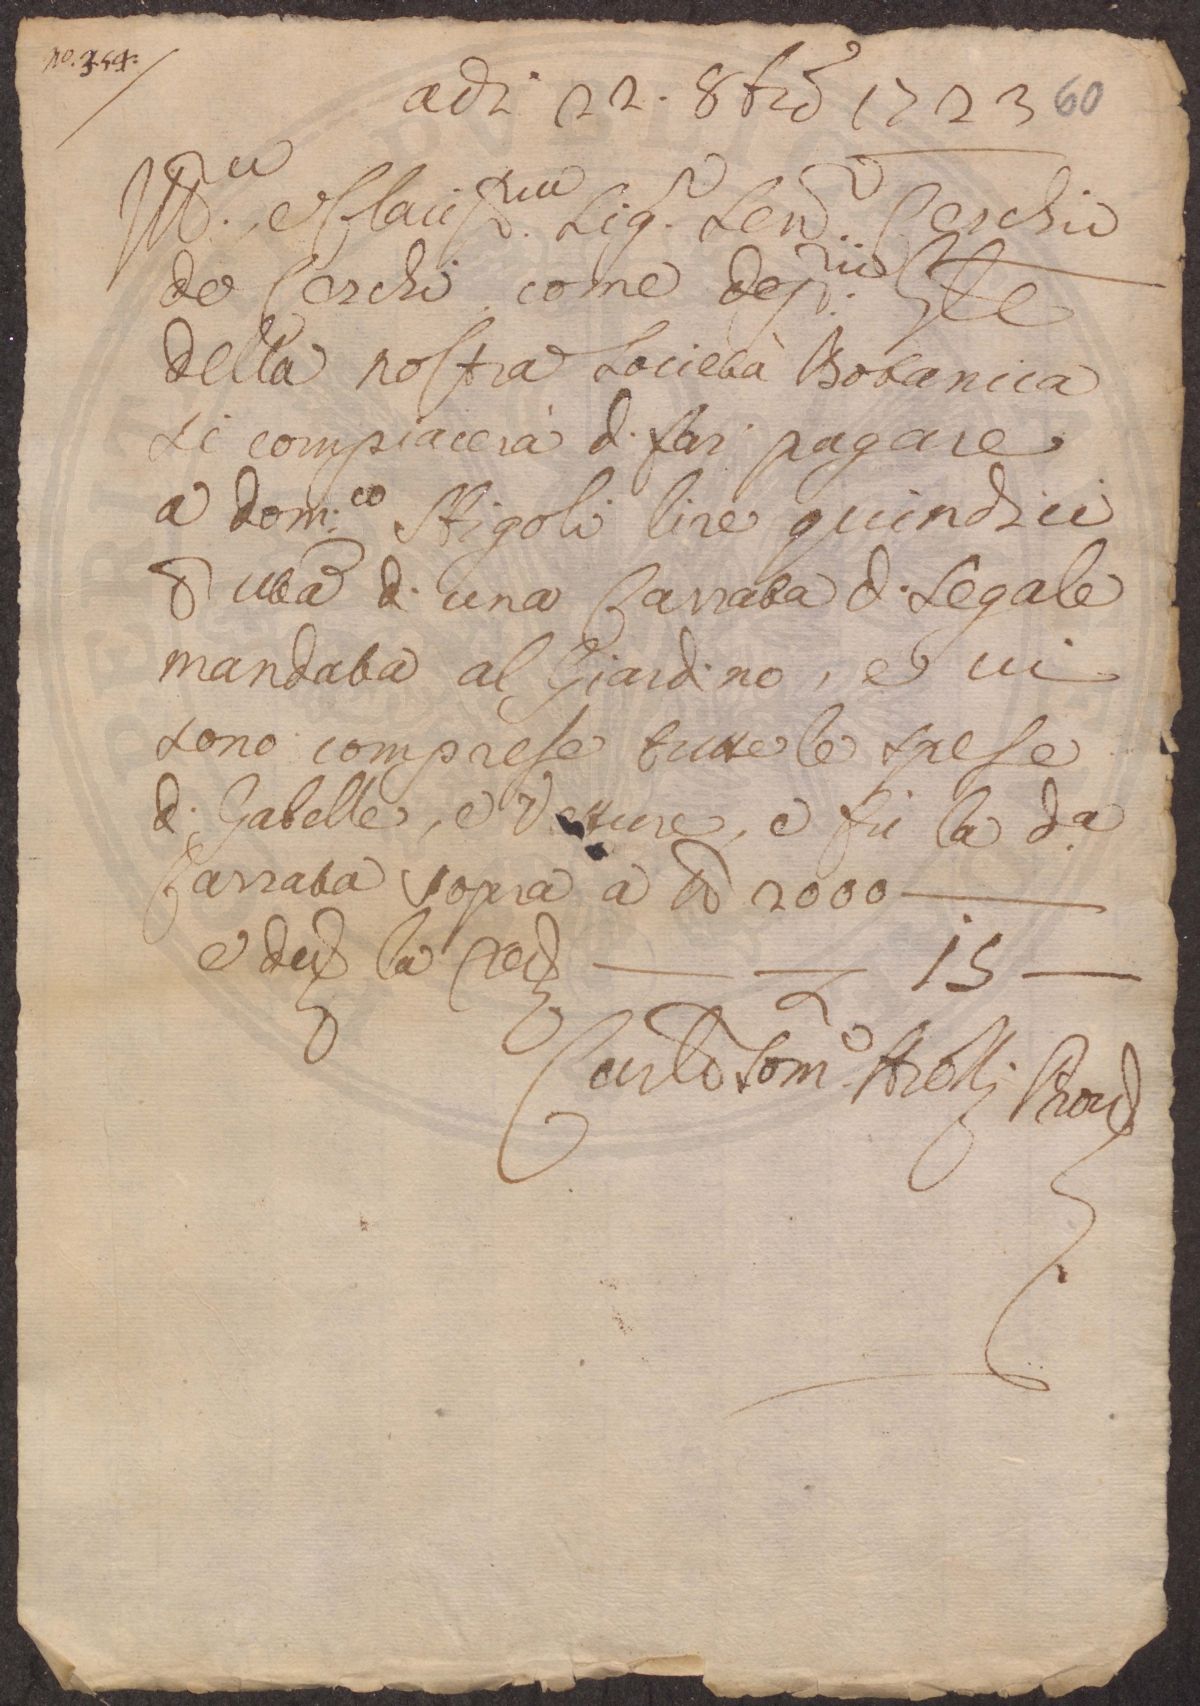 No. 354:
adi 22. 8bre 1723 60
Sig.r Sen.r Cerchio
de Cerchi come dep.rio Gle
della nostra Società Botanica
si compiacerà d. far pagare
a Dom.co Stigoli lire quindici
d. una Carrata d. Segale
mandata al Giardino, e vi
sono comprese tutte le spese
d. Gabelle, e Vetture, e fù la d.a
Carrata sopra a 2000
e 15
Carlo Tom.o